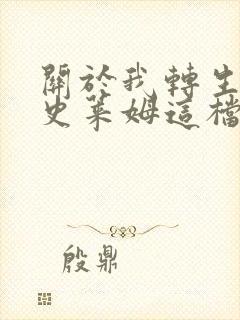 關於我轉生
史萊姆這檔
殷鼎